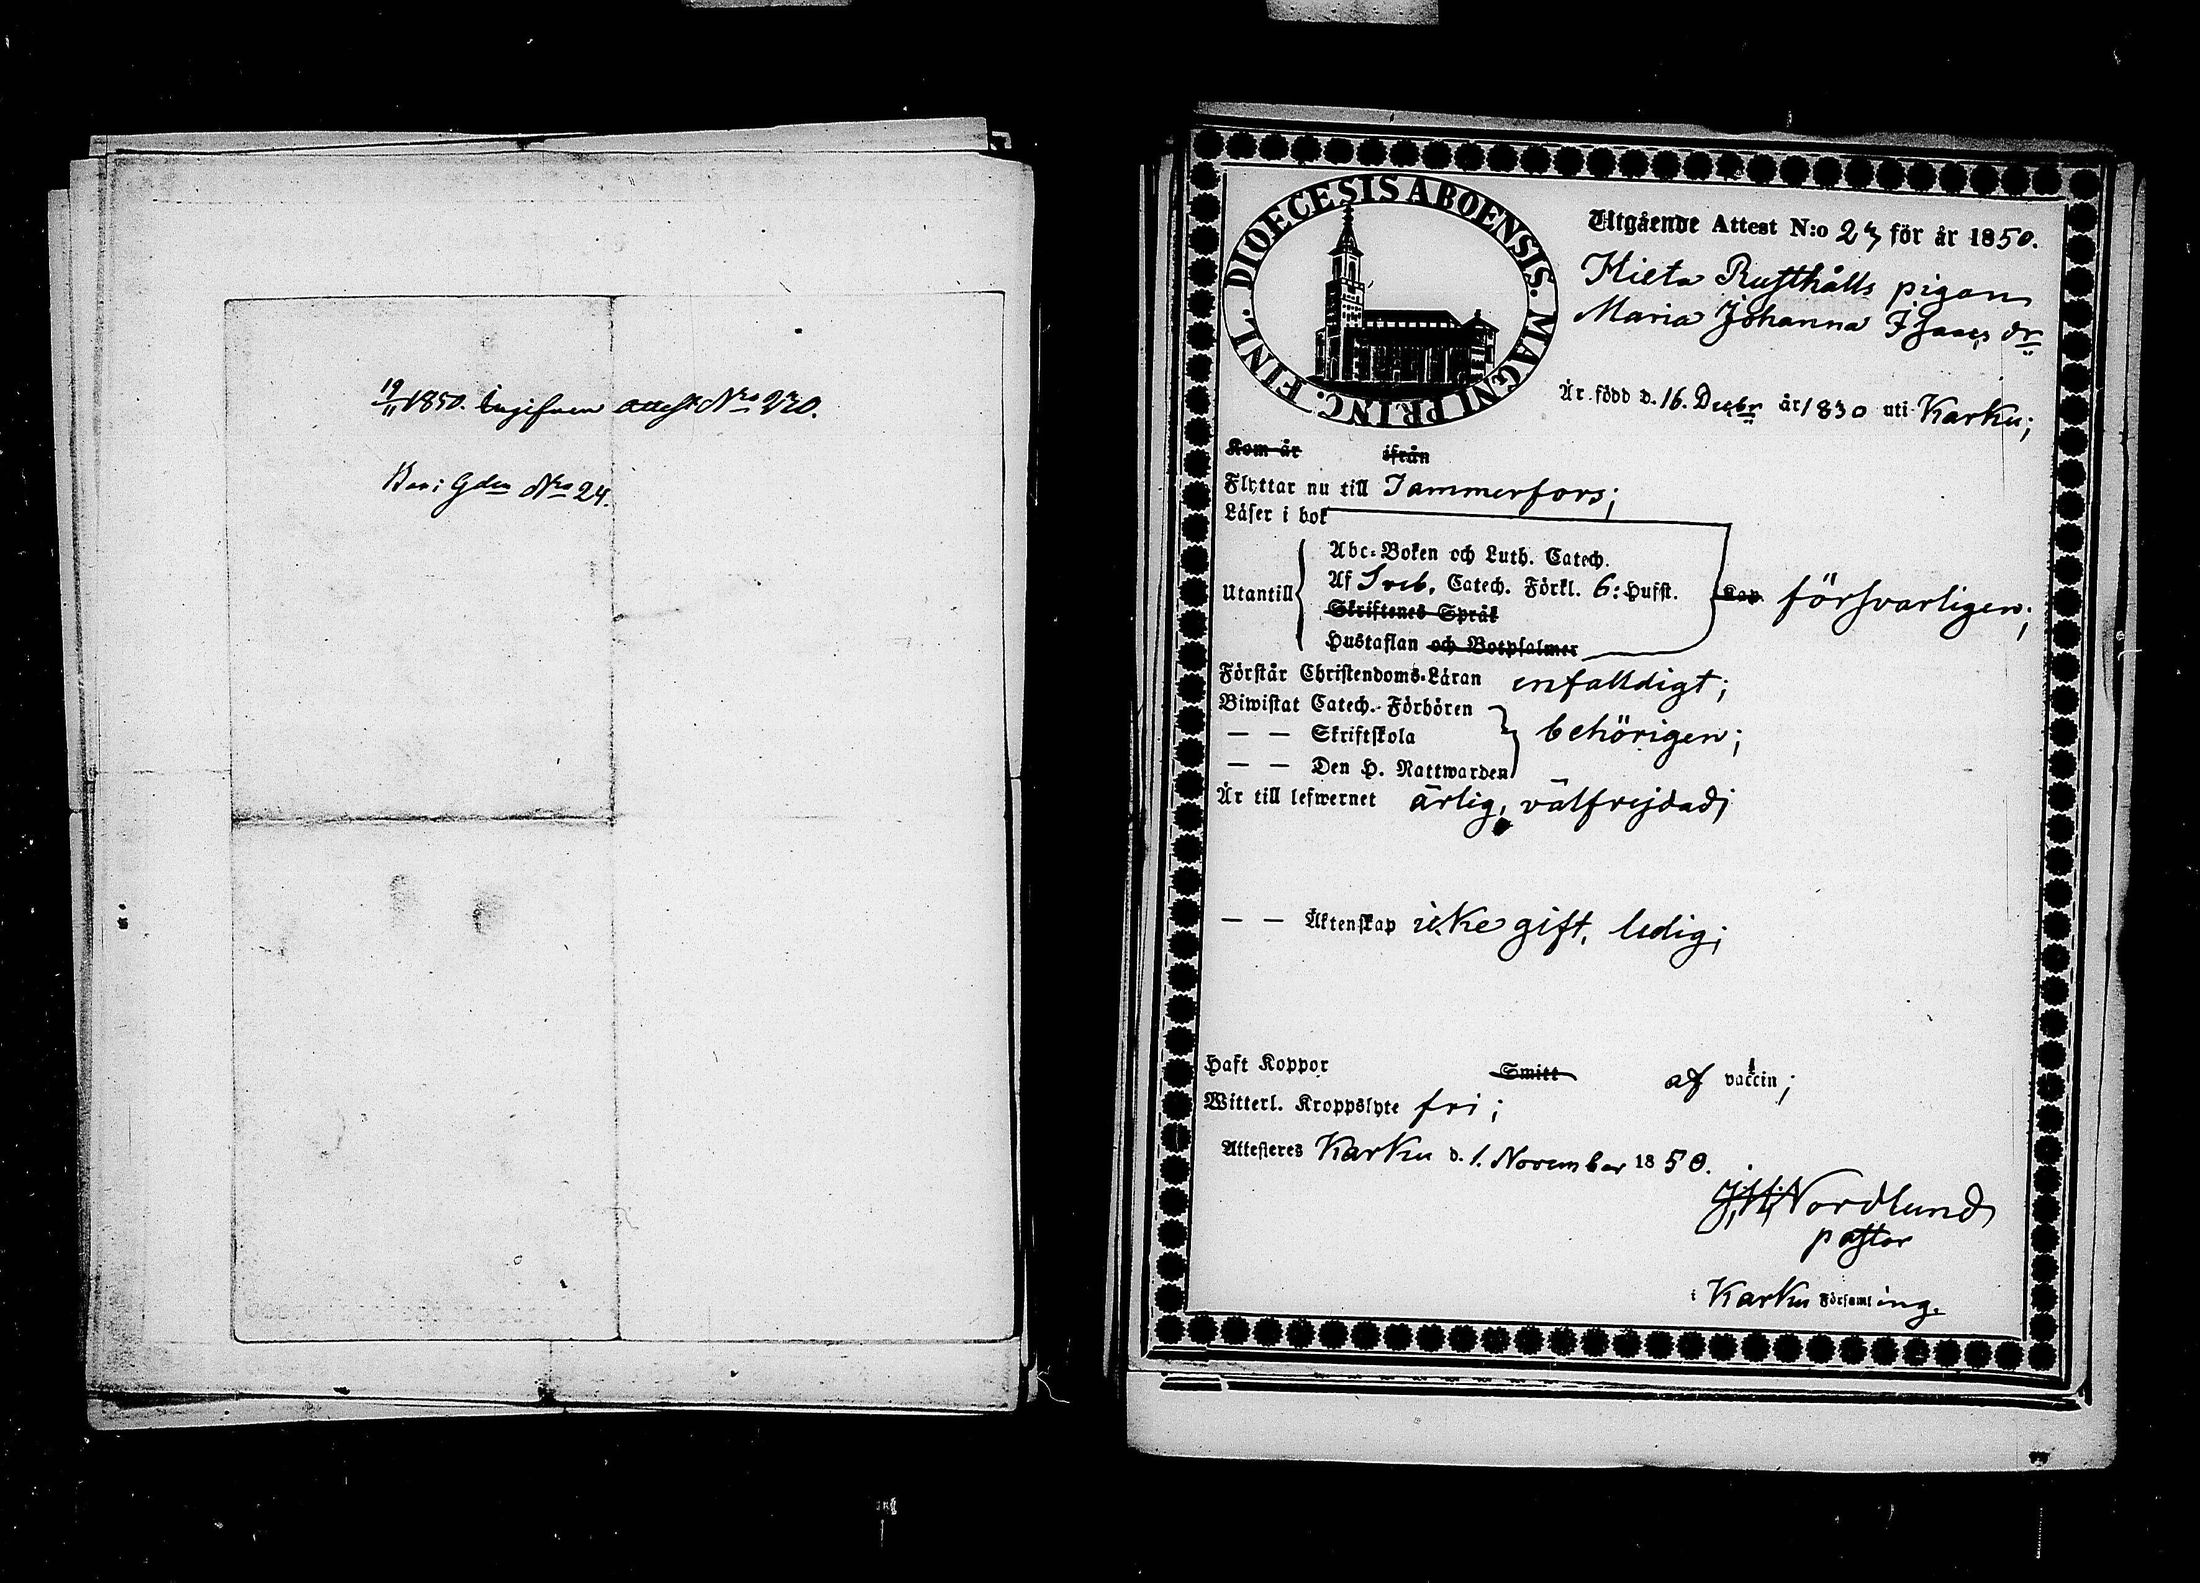 19/11 1850. Ingifven attest Nro 270.
Bor i Gden Nro 24.
DIOECESIS ABOENSIS. MAGNI PRINC. FINL.
Utgående Attest N:o 27 för år 1850.
Hieta Rusthålls pigan
Maria Johanna Isaacs dr
Är född d. 16. Decbr år 1830 uti Karku;
Kom år ifrån
Flyttar nu till Tammerfors;
Läser i bok
Abc-Boken och Luth. Catech.
Utantill Af Sveb. Catech. Förkl. 6: Hufst. Kap. försvarligen;
Skriftenes Språk
Hustaflan och Botpsalmer
Förstår Christendoms-Läran enfalldigt;
Biwistat Catech.-Förhören
— — Skriftskola behörigen;
— — Den H. Nattwarden
Är till lefwernet ärlig, välfrejdad;
— — Äktenskap icke gift, ledig;
Haft Koppor Smitt af vaccin;
Witterl. Kroppslyte fri;
Attesteres Karku d. 1. November 1850.
J. H. Nordlund
pastor
i Karku Församling.